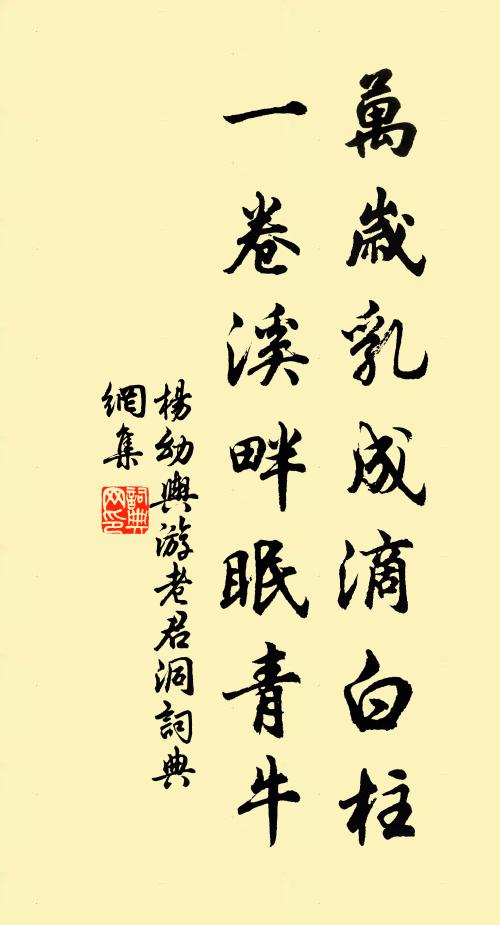 萬歲乳成滴白柱
一卷溪畔眠青牛
楊幼輿游老君洞詞典
網集
詞典
网印